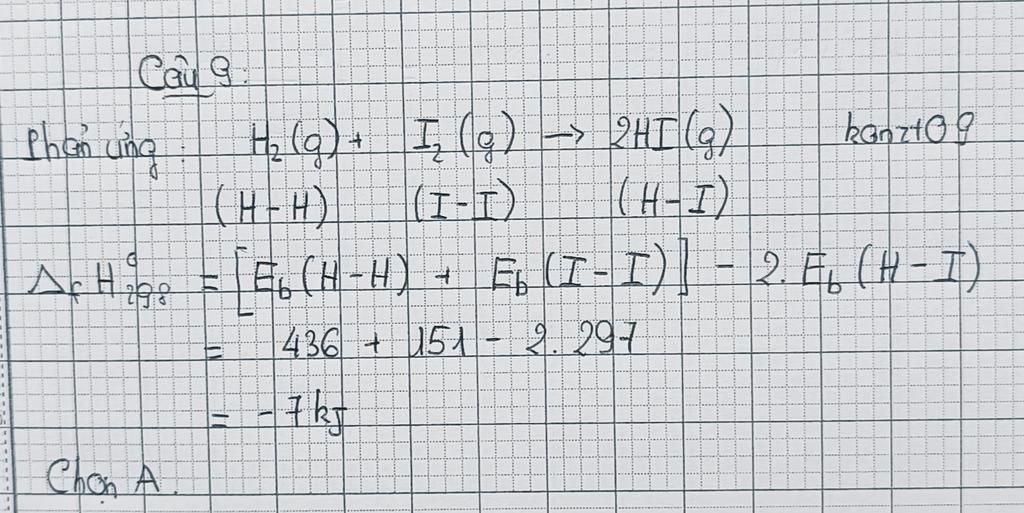 Câu 9:
Phản ứng: H₂(g) + I₂(g) → 2HI(g) kanzt09
(H-H) (I-I) (H-I)
ΔᵣH⁰₂₉₈ = [E_b(H-H) + E_b(I-I)] - 2.E_b(H-I)
= 436 + 151 - 2.297
= -7kJ
Chọn A.